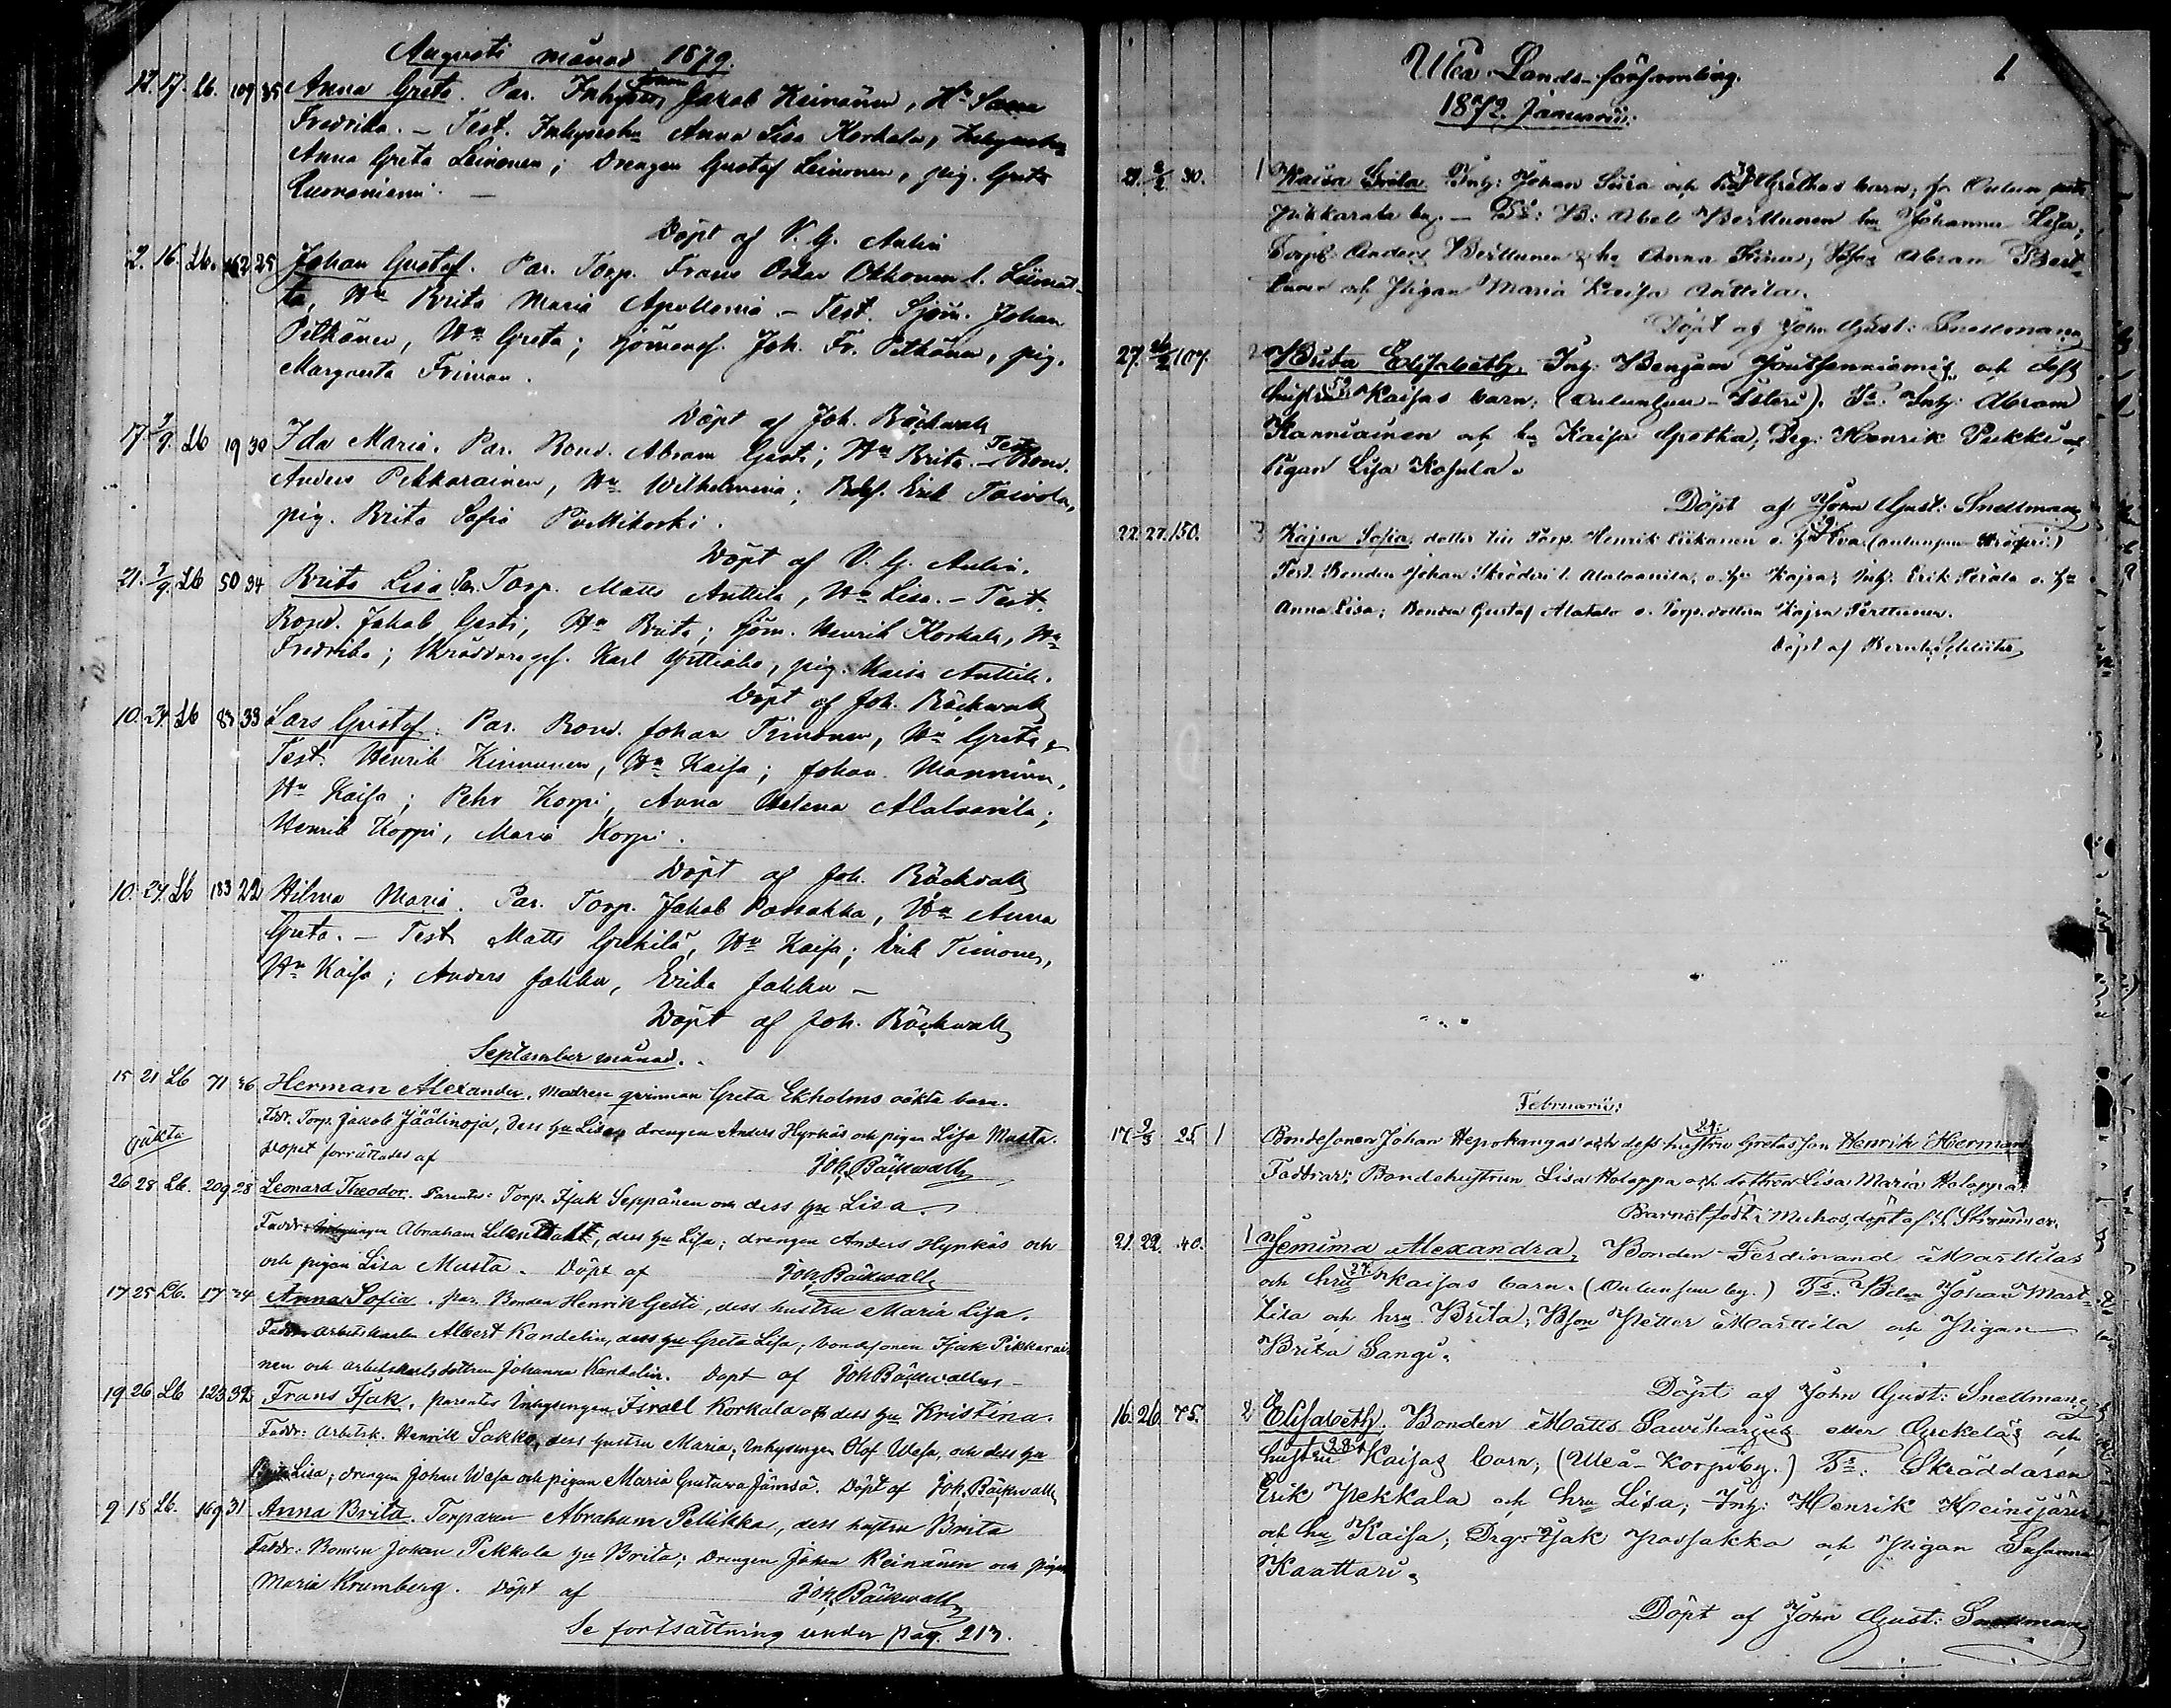 Augusti månad 1879.
12. 17. Lb. 109 35 Anna Greta. Par. Inhys Jakob Keinänen, Hu Sanna
Fredrika. – Test. Inhyseshu Anna Lisa Korkala,
Anna Greta Leinonen; Drengen Gustaf Leinonen, pig. Greta
Lumoniemi. –
Döpt af V. G. Aulin
2. 16. Lb. 162 25 Johan Gustaf. Par. Torp. Frans Oskar Okkonen l. Liimat-
ta, Hu Brita Maria Apollonia – Test. Sjöm. Johan
Pitkänen, Hu Greta; sjömansf. Joh. Fr. Pitkänen, pig.
Margareta Friman.
Döpt af Joh. Bäckwall
17. 7/9. Lb 19 30 Ida Maria. Par. Bond. Abram Gesti; Hu Brita. – Test. Bond.
Anders Pikkarainen, Hu Wilhelmina; Bdsf. Erik Toivola,
pig. Brita Sofia Polttikoski.
Döpt af V. G. Aulin.
21. 7/9. Lb 50 34 Brita Lisa Par. Torp. Matts Anttila, Hu Lisa. – Test.
Bond. Jakob Gesti, Hu Brita; Sjöm. Henrik Korkala, Hu
Fredrika; Skräddaregs. Karl, pig. Kaisa Anttila.
Döpt af Joh. Bäckwall
10. 24. Lb 87 33 Lars Gustaf. Par. Bond. Johan Timonen, Hu Greta
Test. Henrik Kinnunen, Hu Kaisa; Johan Manninen,
Hu Kaisa; Pehr Korpi, Anna Helena Alalaanila;
Henrik Korpi, Maria Korpi.
Döpt af Joh. Bäckwall
10. 24. Lb 183 22 Hilma Maria. Par. Torp. Jakob Paasakka, Hu Anna
Greta. – Test. Matts Hu Kaisa; Erik Timonen,
Hu Kaisa; Anders Jakku, Erika Jakku –
Döpt af Joh. Bäckwall
September månad.
15 21 Lb 71 36 Herman Alexander, Modren qvinnan Greta Ekholms oäkta barn.
Fadr. Torp. Jakob Jäälinoja, dess hu Lisa, drengen Anders Hyrkäs och pigan Lisa Musta.
oäkta dopet förrättades af Joh. Bäckwall
26 28 Lb. 209 28 Leonard Theodor. Parentes: Torp. Isak Seppänen och dess hu Lisa.
Faddr: Inhysingen Abraham, dess hu Lisa; drengen Anders Hyrkäs och
och pigan Lisa Musta. Döpt af Joh. Bäckwall
17 25 Lb. 17 34 Anna Sofia. par. Bonden Henrik Gesti, dess hustru Maria Lisa.
Faddr. Arbetskarlen Albert Kandelin, dess hu Greta Lisa, bondesonen Isak Pikkarai-
nen och arbetskarlsdottren Johanna Kandelin. Döpt af Joh Bäckwall
19 26 Lb 123 32 Frans Isak. parentes Inhysingen Israel Korkala och dess hu Kristina.
Faddr: Arbetsk. Henrik Sakko, dess hustru Maria; Inhysingen Olof Wasa, och dess hu
Lisa; drengen Johan Wasa och pigan Maria Gustava Jämsä. Döpt af Joh. Bäckwall
9 18 Lb. 169 31 Anna Brita. Torparen Abraham Pellikka, dess hustru Brita
Faddr. Bonden Johan Pekkala hu Brita; Drengen Johan Keinänen och pigan
Maria Krumberg. Döpt af Joh. Bäckwall
Se fortsättning under pag. 217.
Uleå Lands-församling. 1
1872. Januarii:
21. 2/2 30. 1 Kaisa Brita Inh: Johan Siira och hu Grethas barn, fr Oulun
Pikkarala by. – Ts: B: Abel Perttunen hu Johanna Lisa;
Torp: Anders Perttunen & hu Anna Abram Pert-
tunen och Pigan Maria Kaisa Anttila.
Döpt af John Gust: Snellman
27. 107. 2 Brita Elisabeth. Inh: Benjam och dess
hustru Kaisas barn; Ts: Inh: Abram
Kanniainen och hu Kaisa Drg: Henrik Pukki och
Pigan Lisa Kosula.
Döpt af John Gust: Snellman
22. 27. 150. 3 Kajsa Sofia, dotter till Torp. Henrik Liikanen o. hu Eva
Test. Bonden Johan Skröderi l. Alalaanila, o. hu Kajsa; Inh: Erik Perälä o. hu
Anna Lisa; Bonden Gustaf Alatalo o. Torp. dottern Kajsa Perttunen.
Döpt af Bernh. Schlüter
Februarii:
17. 2/3 25. 1 Bondesonen Johan Hepokangas och dess hustru Gretas son Henrik Herman
Faddrar: Bondehustrun Lisa Holappa och dottren Lisa Maria Holappa.
Barnet född i Muhos, döpt af
21. 22. 40. 1 Jemima Alexandra, Bonden Ferdinand Marttilas
och hru 27. Kaisas barn. (Oulunsuu by.) Ts: Bden Johan Mart-
tila och hru Brita; Bson Petter Marttila och Pigan
Brita Sangi.
Döpt af John Gust: Snellman
16. 26. 75. 2 Elisabeth. Bonden Matts Sawiharjus eller och
hustru 28. Kaisas barn; (Uleå-Korpiby.) Ts: Skräddaren
Erik Pekkala och hru Lisa; Inh: Henrik
och hu Kaisa; Drg: Isak Paasakka och Pigan Susanna
Kaattari.
Döpt af John Gust: Snellman